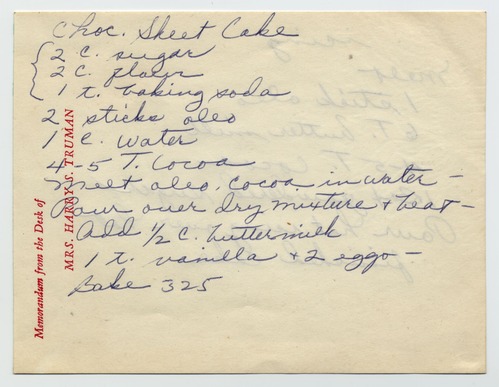 Choc. Sheet Cake
2 c. sugar
2 c. flour
1 t. baking soda
2 sticks oleo
1 c. water
4-5 T. Cocoa
Melt oleo, cocoa in water -
Pour over dry mixture & beat -
Add 1/2 c. buttermilk
1 t. vanilla & 2 eggs -
Bake 325
Memorandum from the Desk of
MRS. HARRY S. TRUMAN